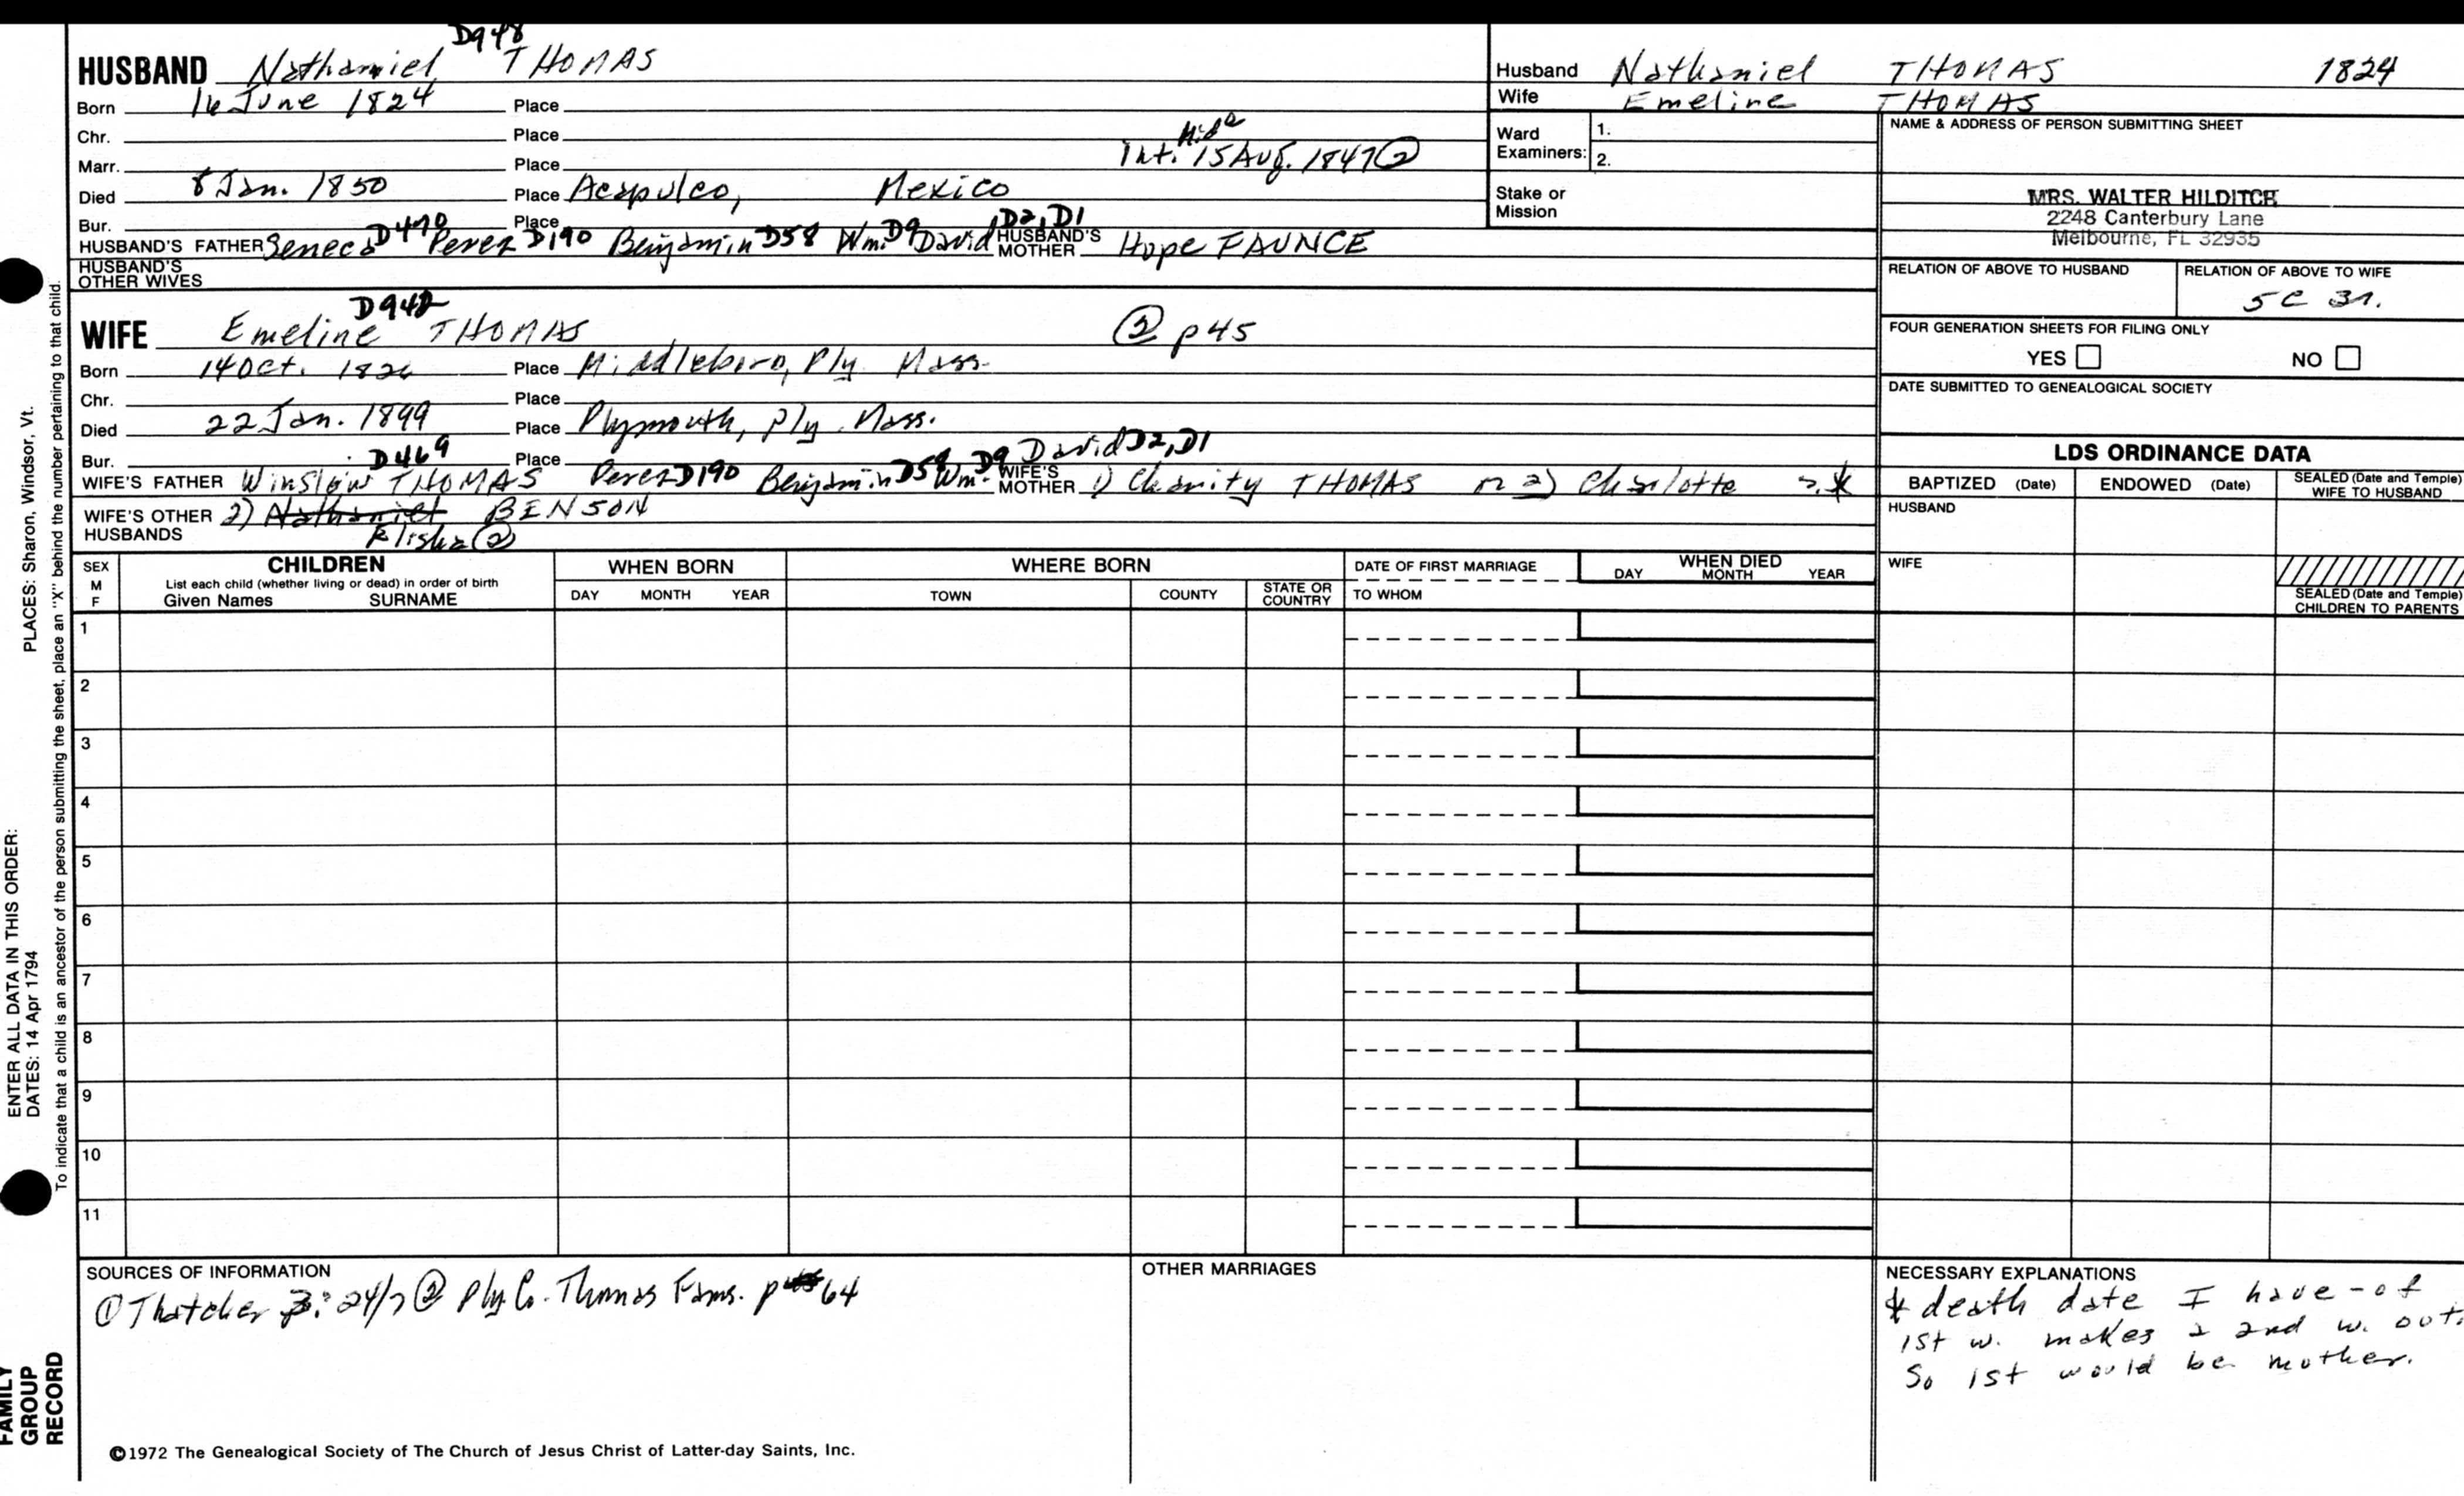 D948
HUSBAND Nathaniel THOMAS
Born 16 June 1824 Place
Chr. Place
Mid @
Marr. Place Int. 15 Aug. 1847 ②
Died 8 Jan. 1850 Place Acapulco, Mexico
Bur. Place
HUSBAND'S FATHER Seneca D470 Perez D190 Benjamin D58 Wm. D9 David D2, D1 HUSBAND'S MOTHER Hope FAUNCE
HUSBAND'S OTHER WIVES
D948
WIFE Emeline THOMAS ② p45
Born 14 Oct. 1826 Place Middleboro, Ply. Mass.
Chr. Place
Died 22 Jan. 1899 Place Plymouth, Ply. Mass.
Bur. Place
WIFE'S FATHER Winslow THOMAS D469 Perez D190 Benjamin D58 Wm. D9 David D2, D1 WIFE'S MOTHER 1) Charity THOMAS or 2) Charlotte ?*
WIFE'S OTHER HUSBANDS 2) Nathaniel BENSON
Elisha ②
Husband Nathaniel THOMAS 1824
Wife Emeline THOMAS
Ward Examiners: 1.
2.
Stake or Mission
NAME & ADDRESS OF PERSON SUBMITTING SHEET
MRS. WALTER HILDITCH
2248 Canterbury Lane
Melbourne, FL 32935
RELATION OF ABOVE TO HUSBAND
RELATION OF ABOVE TO WIFE
5C 3r.
FOUR GENERATION SHEETS FOR FILING ONLY
YES NO
DATE SUBMITTED TO GENEALOGICAL SOCIETY
LDS ORDINANCE DATA
BAPTIZED (Date) ENDOWED (Date) SEALED (Date and Temple) WIFE TO HUSBAND
HUSBAND
WIFE
SEALED (Date and Temple) CHILDREN TO PARENTS
SEX M F
CHILDREN
List each child (whether living or dead) in order of birth
Given Names SURNAME
WHEN BORN
DAY MONTH YEAR
WHERE BORN
TOWN COUNTY STATE OR COUNTRY
DATE OF FIRST MARRIAGE
TO WHOM
WHEN DIED
DAY MONTH YEAR
1
2
3
4
5
6
7
8
9
10
11
SOURCES OF INFORMATION
① Thatcher 3: 24/7 ② Ply. Co. Thomas Fams. p 64
OTHER MARRIAGES
NECESSARY EXPLANATIONS
* death date I have - of
1st w. makes a 2nd w. out.
So 1st would be mother.
©1972 The Genealogical Society of The Church of Jesus Christ of Latter-day Saints, Inc.
FAMILY GROUP RECORD
ENTER ALL DATA IN THIS ORDER:
DATES: 14 Apr 1794
PLACES: Sharon, Windsor, Vt.
To indicate that a child is an ancestor of the person submitting the sheet, place an "X" behind the number pertaining to that child.